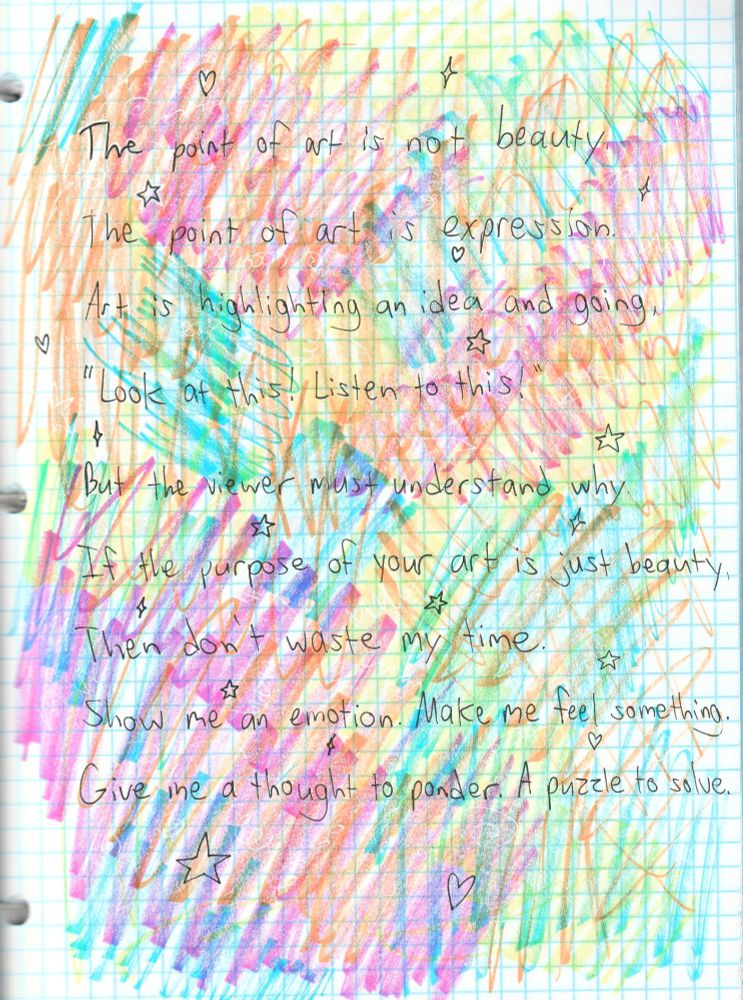 The point of art is not beauty.
The point of art is expression.
Art is highlighting an idea and going,
"Look at this! Listen to this!"
But the viewer must understand why.
If the purpose of your art is just beauty,
Then don't waste my time.
Show me an emotion. Make me feel something.
Give me a thought to ponder. A puzzle to solve.